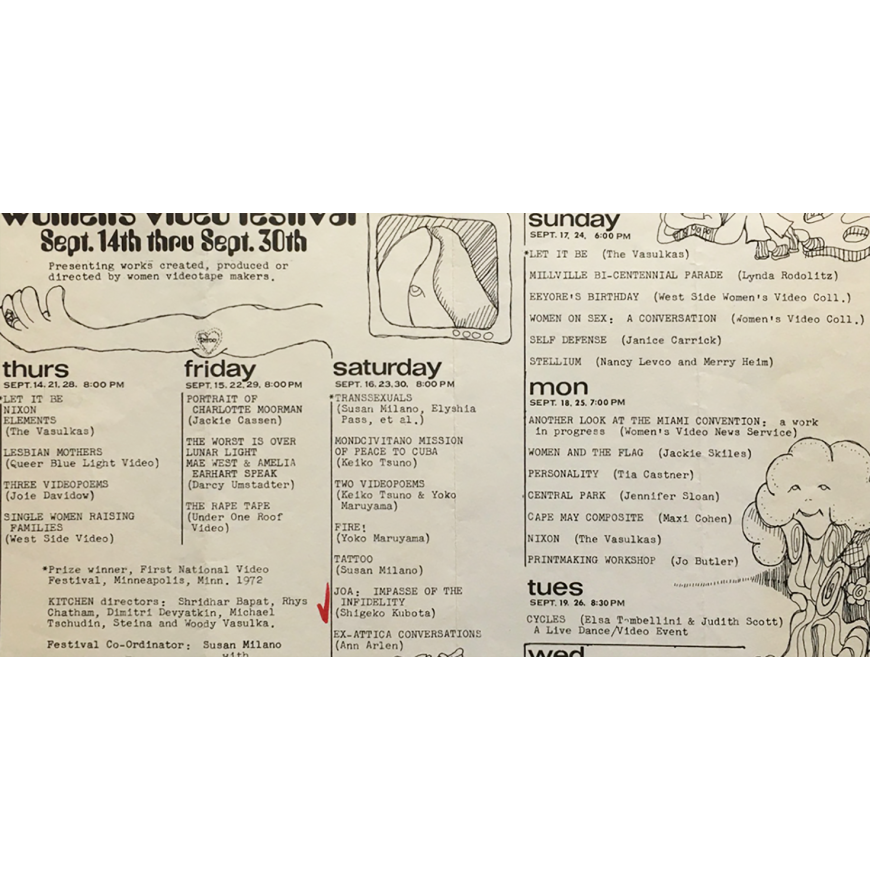 Women's video festival
Sept. 14th thru Sept. 30th
Presenting works created, produced or
directed by women videotape makers.
thurs
SEPT. 14, 21, 28. 8:00 PM
*LET IT BE
NIXON
ELEMENTS
(The Vasulkas)
LESBIAN MOTHERS
(Queer Blue Light Video)
THREE VIDEOPOEMS
(Joie Davidow)
SINGLE WOMEN RAISING
FAMILIES
(West Side Video)
friday
SEPT. 15, 22, 29, 8:00 PM
PORTRAIT OF
CHARLOTTE MOORMAN
(Jackie Cassen)
THE WORST IS OVER
LUNAR LIGHT
MAE WEST & AMELIA
EARHART SPEAK
(Darcy Umstadter)
THE RAPE TAPE
(Under One Roof
Video)
*Prize winner, First National Video
Festival, Minneapolis, Minn. 1972
KITCHEN directors: Shridhar Bapat, Rhys
Chatham, Dimitri Devyatkin, Michael
Tschudin, Steina and Woody Vasulka.
Festival Co-Ordinator: Susan Milano
with
saturday
SEPT. 16, 23, 30, 8:00 PM
*TRANSSEXUALS
(Susan Milano, Elyshia
Pass, et al.)
MONDCIVITANO MISSION
OF PEACE TO CUBA
(Keiko Tsuno)
TWO VIDEOPOEMS
(Keiko Tsuno & Yoko
Maruyama)
FIRE!
(Yoko Maruyama)
TATTOO
(Susan Milano)
JOA: IMPASSE OF THE
INFIDELITY
(Shigeko Kubota)
EX-ATTICA CONVERSATIONS
(Ann Arlen)
sunday
SEPT. 17, 24, 6:00 PM
*LET IT BE (The Vasulkas)
MILLVILLE BI-CENTENNIAL PARADE (Lynda Rodolitz)
EEYORE'S BIRTHDAY (West Side Women's Video Coll.)
WOMEN ON SEX: A CONVERSATION (Women's Video Coll.)
SELF DEFENSE (Janice Carrick)
STELLIUM (Nancy Levco and Merry Heim)
mon
SEPT. 18, 25, 7:00 PM
ANOTHER LOOK AT THE MIAMI CONVENTION: a work
in progress (Women's Video News Service)
WOMEN AND THE FLAG (Jackie Skiles)
PERSONALITY (Tia Castner)
CENTRAL PARK (Jennifer Sloan)
CAPE MAY COMPOSITE (Maxi Cohen)
NIXON (The Vasulkas)
PRINTMAKING WORKSHOP (Jo Butler)
tues
SEPT. 19, 26. 8:30 PM
CYCLES (Elsa Tambellini & Judith Scott)
A Live Dance/Video Event
wed